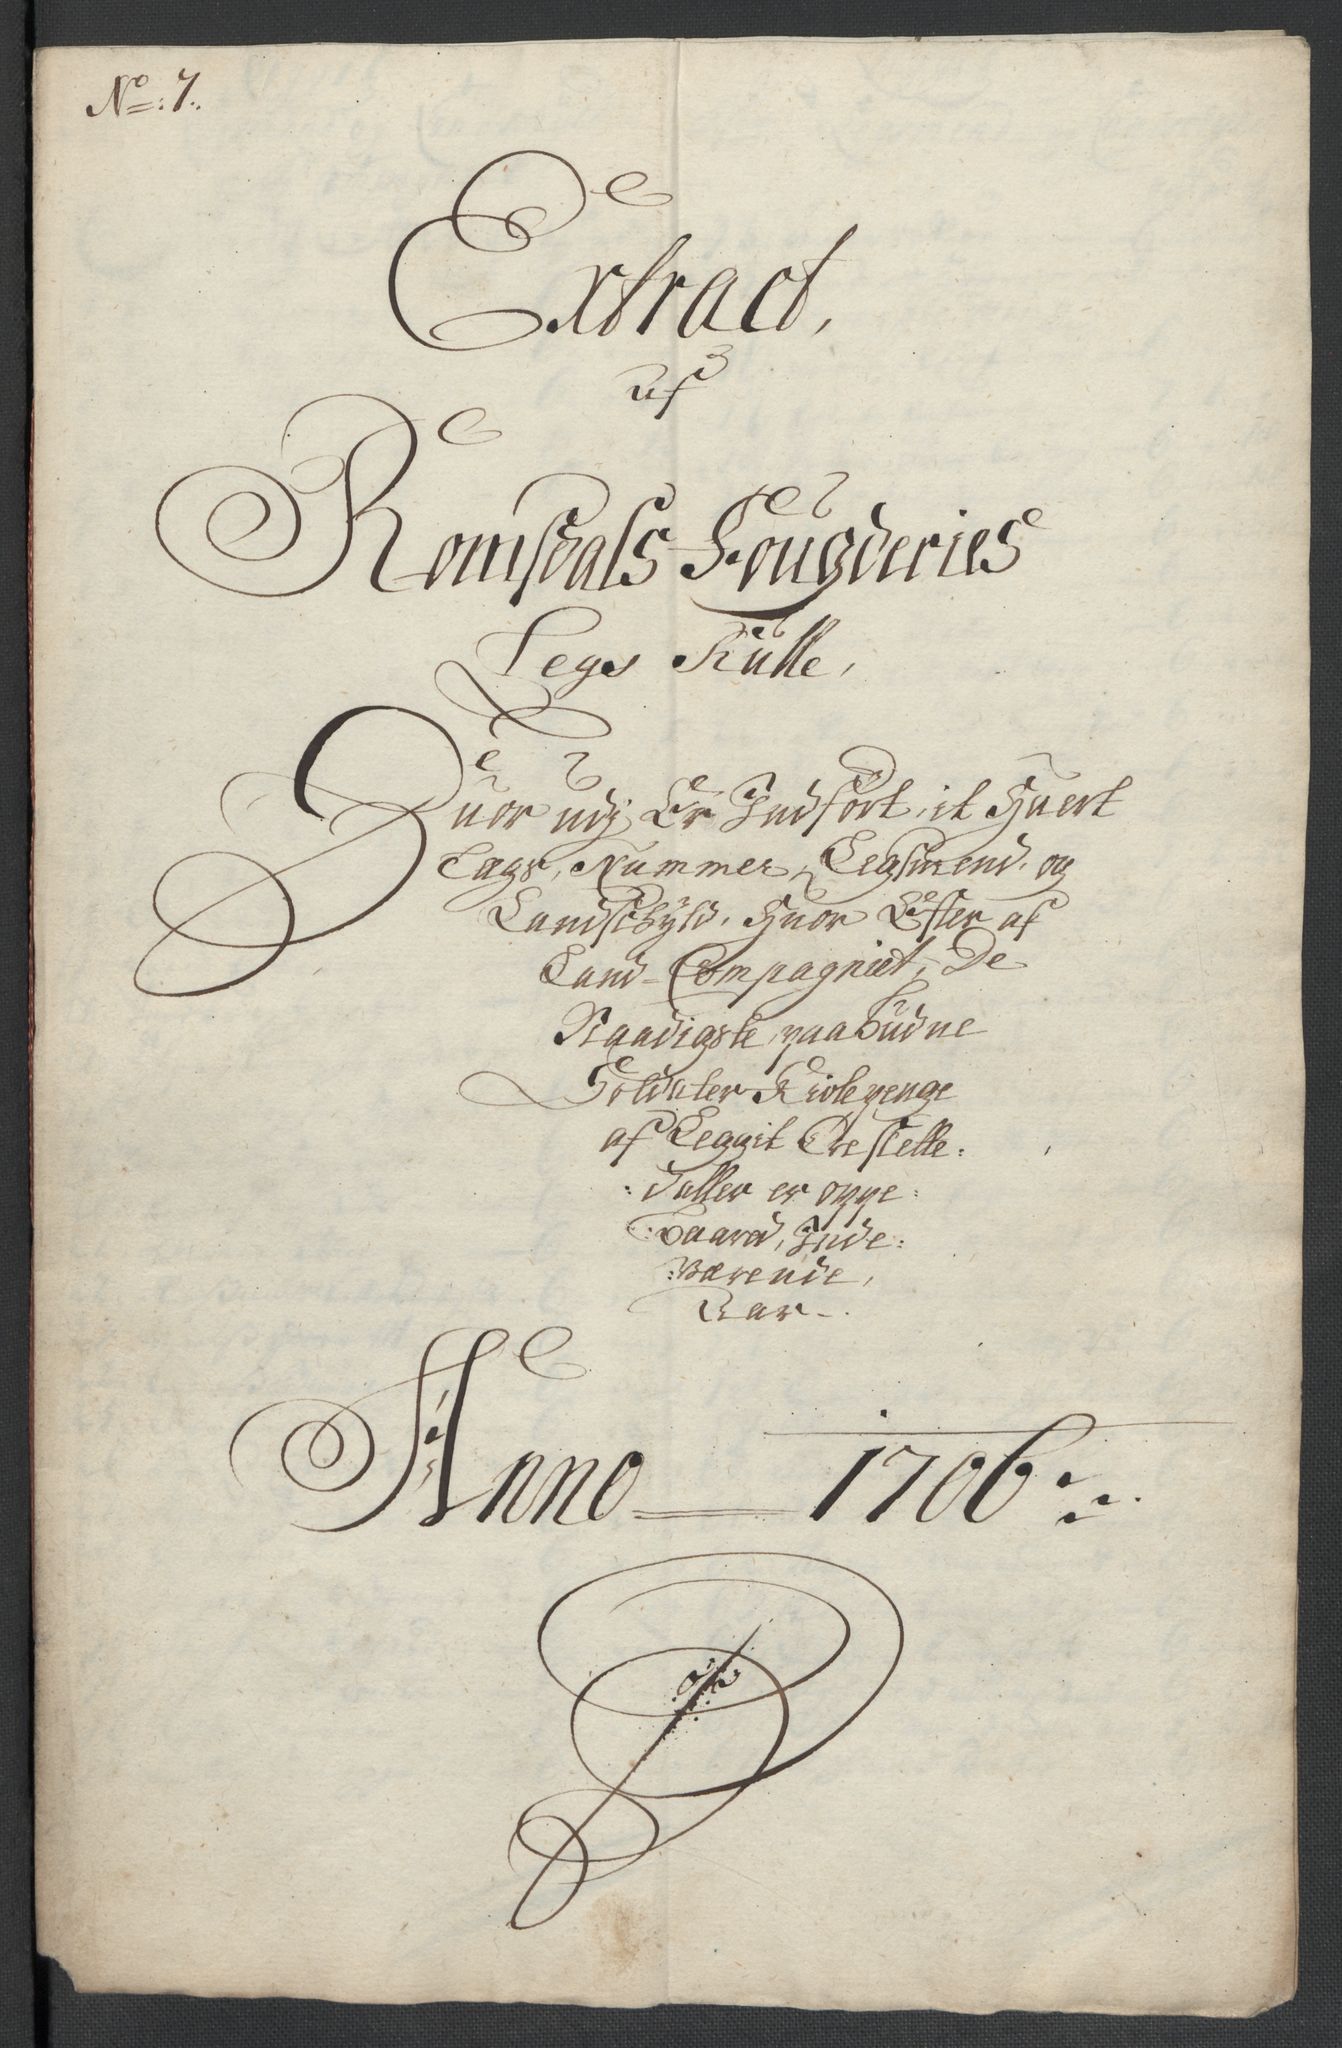 No: 7.
Extract,
af
Romsdals Fougderies
Legs Rulle,
Huor udj Er Indført, it Huert
Lægs, Nummer, Legsmend, og
Landschyld, Huor Efter af
Land-Compagniet, De
Naadigste paabudne
Soldater Kiolepenge
af Leggit
:daller er oppe:
:baaren, Inde:
:værende,
Aar-.
Anno 1706